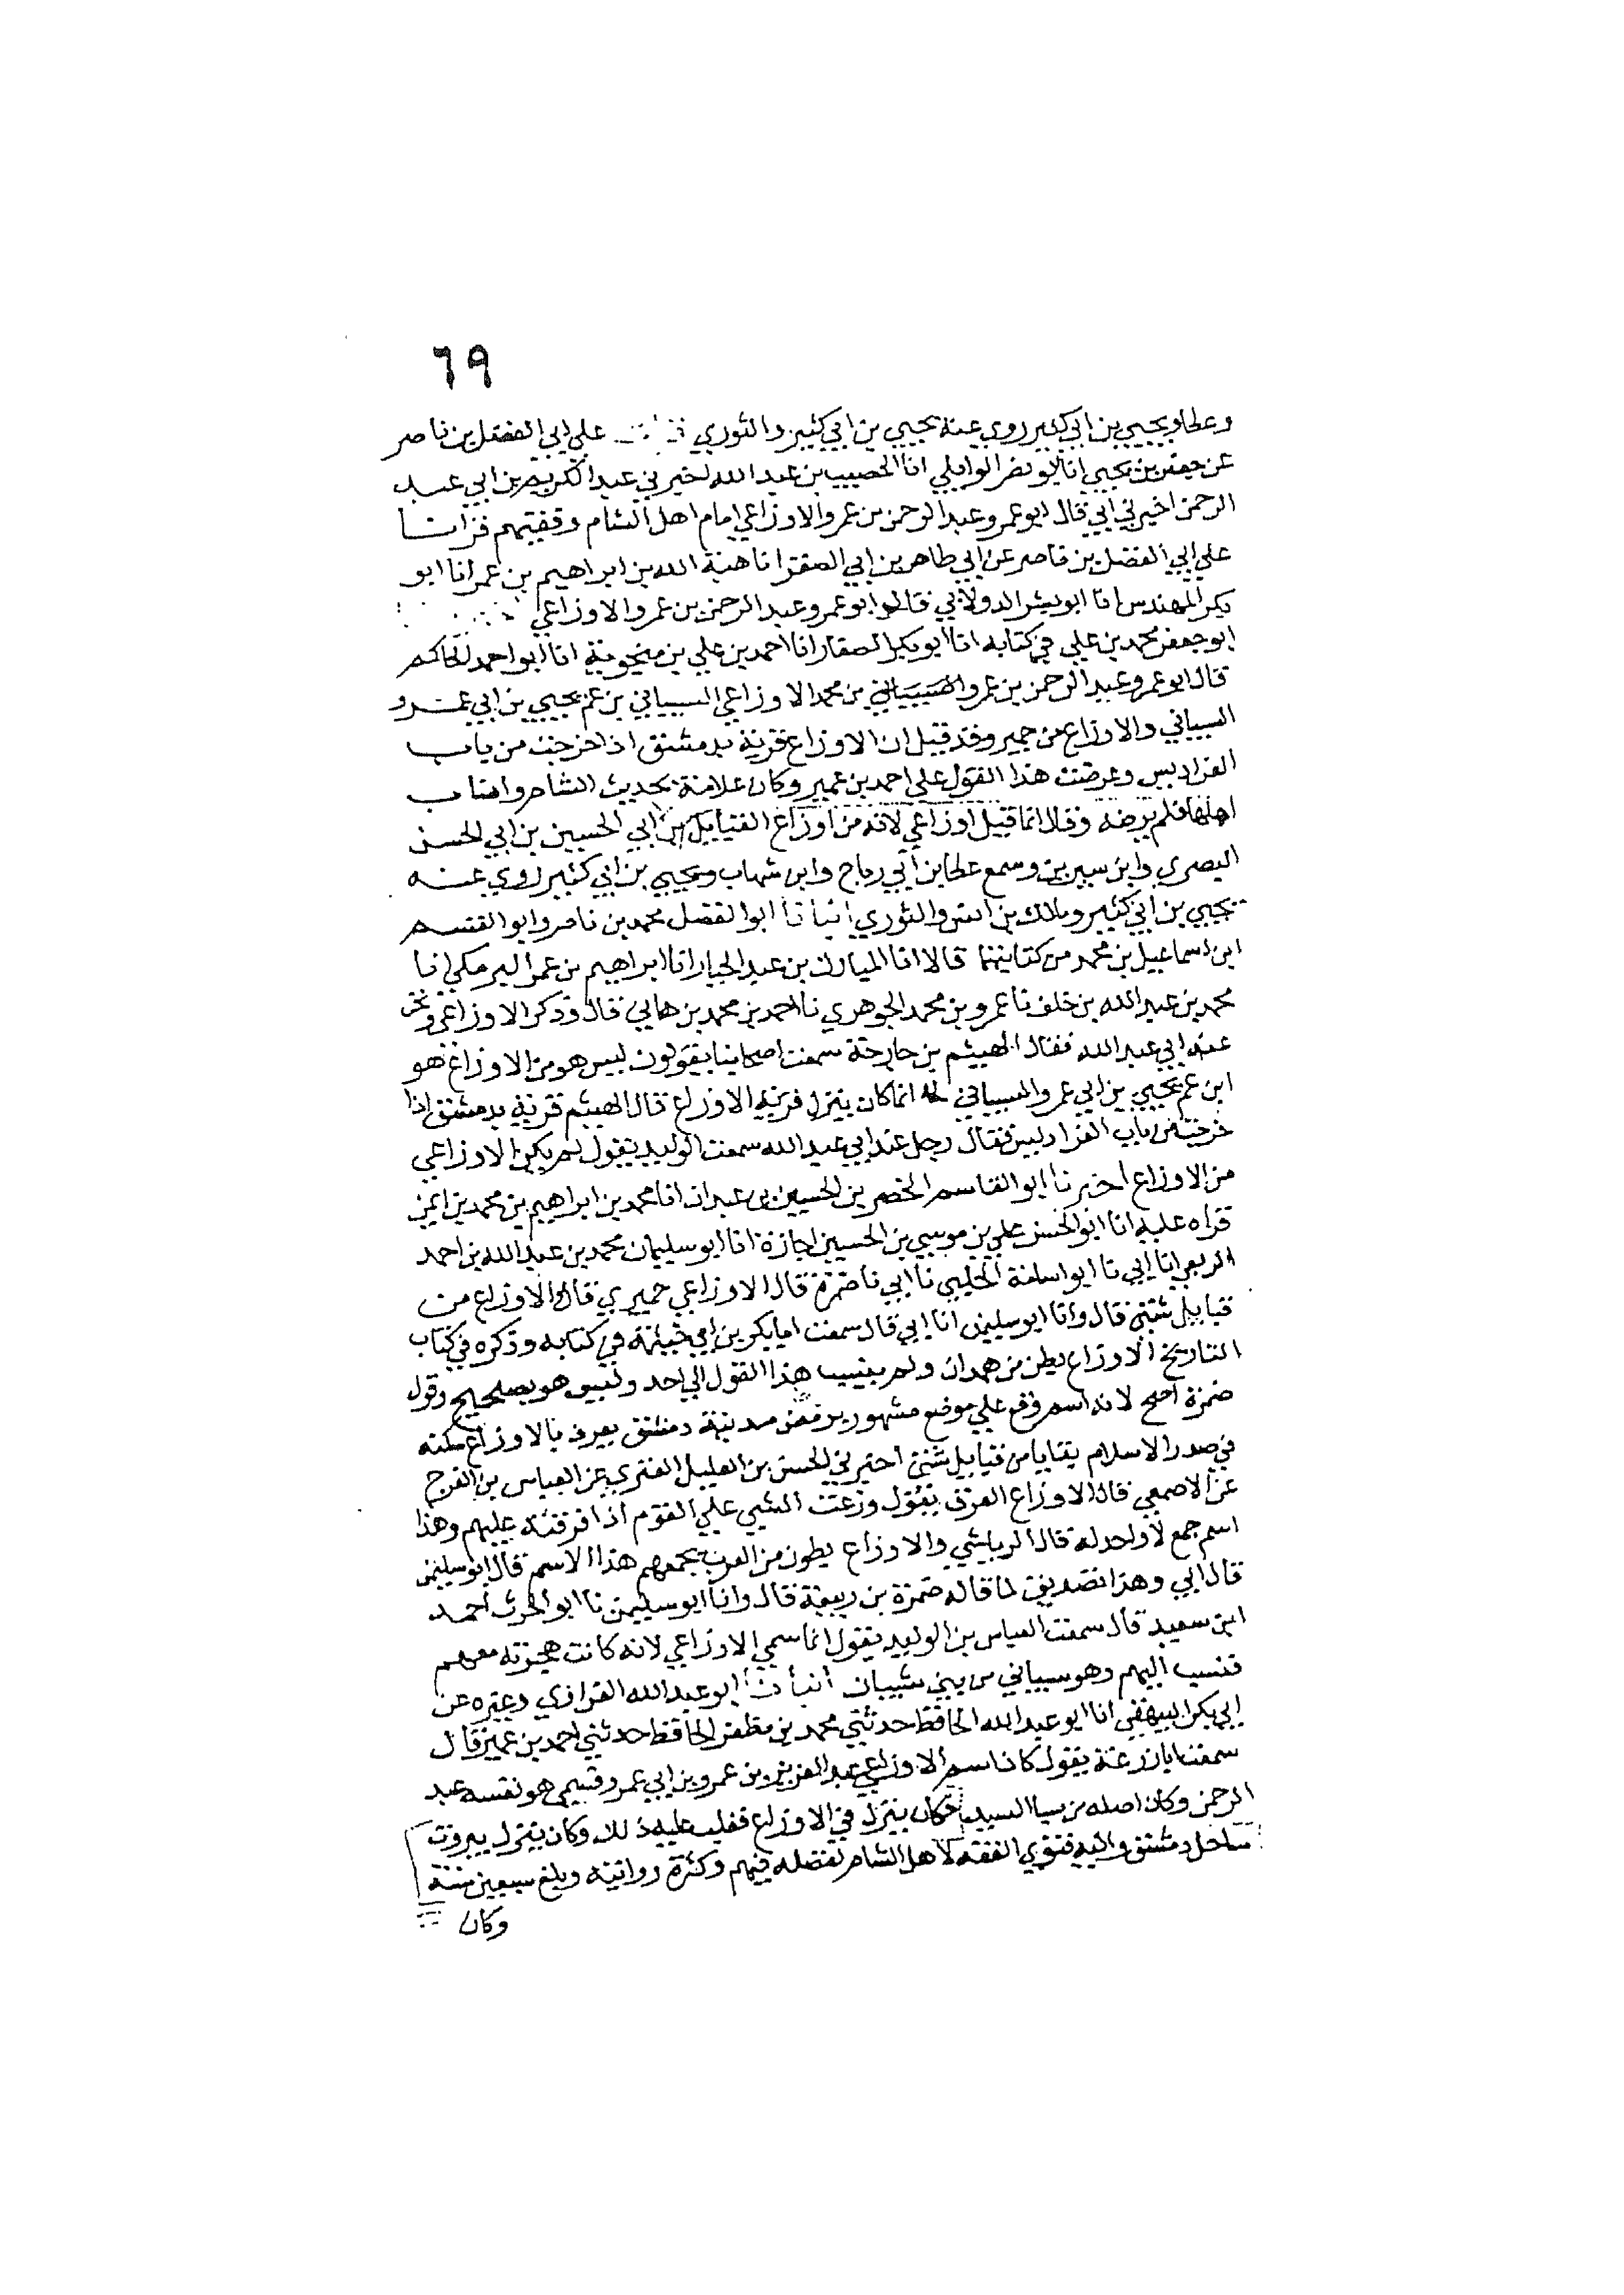 ٦٩
وعطا ويحيي بن ابي كثير روي عنه يحيي بن ابي كثير والثوري علي ابي الفضل بن ناصر
عن جعفر بن يحيي انا ابو نصر الوايلي انا الخصيب بن عبد الله اخبرني عبد الكريم بن ابي عبد
الرحمن اخبرني ابي قال ابو عمرو عبد الرحمن بن عمرو الاوزاعي امام اهل الشام وفقيههم قرانا
علي ابي الفضل بن ناصر عن ابي طاهر بن ابي الصقر انا هبة الله بن ابراهيم بن عمر انا ابو
بكر المهندس انا ابو بشر الدولابي قال ابو عمرو عبد الرحمن بن عمرو الاوزاعي
ابو جعفر محمد بن علي في كتابه انا ابو بكر الصفار انا احمد بن علي بن منجوية انا ابو احمد الحاكم
قال ابو عمرو عبد الرحمن بن عمرو بن محمد الاوزاعي السيباني بن عم يحيي بن ابي عمرو
السيباني والاوزاع من حمير وقد قيل ان الاوزاع قرية بدمشق اذا خرجت من باب
الفراديس وعرضت هذا القول علي احمد بن عمير وكان علامة بحديث الشام وانساب
اهلها فلم يرضه وقال انما قيل اوزاعي لانه من اوزاع القبايل ابي الحسين بن ابي الحسن
البصري وابن سيرين وسمع عطا بن ابي رباح وابن شهاب ويحيي بن ابي كثير روي عنه
يحيي بن ابي كثير ومالك بن انس والثوري انبانا ابو الفضل محمد بن ناصر وابو القسم
ابن اسماعيل بن محمد من كتابيهما قالا انا المبارك بن عبد الجبار انا ابراهيم بن عمر البرمكي انا
محمد بن عبد الله بن خلف نا عمرو بن محمد الجوهري نا احمد بن محمد بن هاني قال وذكر الاوزاعي ونحن
عند ابي عبد الله فقال الهيثم بن خارجة سمعت اصحابنا يقولون ليس هو من الاوزاع هو
ابن عم يحيي بن ابي عمرو السيباني انما كان ينزل قرية الاوزاع قال الهيثم قرية بدمشق اذا
خرجت من باب الفراديس فقال رجل عند ابي عبد الله سمعت الوليد يقول لم يكن الاوزاعي
من الاوزاع اخبرنا ابو القاسم الخضر بن الحسين بن عبدان انا محمد بن ابراهيم بن محمد بن ايمن
قراه عليه انا ابو الحسن علي بن موسي بن الحسين اجازة انا ابو سليمان محمد بن عبد الله بن احمد
الربعي انا ابي نا ابو اسامة الحلبي نا ابي نا ضمرة قال الاوزاعي حميري قال والاوزاع من
قبايل شتي قال وانا ابو سليمن انا ابي قال سمعت ابا بكر بن ابي خيثمة في كتابه وذكره في كتاب
التاريخ الاوزاع بطن من همدان ولم ينسب هذا القول الي احد وليس هو بصحيح وقول
ضمرة اصح لانه اسم وقع علي موضع مشهور بربض مدينة دمشق يعرف بالاوزاع سكنه
في صدر الاسلام بقايا من قبايل شتي اخبرني الحسن بن العليل العنزي عن العباس بن الفرج
عن الاصمعي قال الاوزاع الفرق يقول وزعت الشي علي القوم اذا فرقته عليهم وهذا
اسم جمع لا واحد له قال الرياشي والاوزاع بطون من العرب يجمعهم هذا الاسم قال ابو سليمن
قال ابي وهذا تصديق لما قاله ضمرة بن ربيعة قال وانا ابو سليمن نا ابو الحرث احمد
ابن سعيد قال سمعت العباس بن الوليد يقول انما سمي الاوزاعي لانه كانت هجرته معهم
فنسب اليهم وهو سيباني من بني شيبان انبأنا ابو عبد الله الفراوي وغيره عن
ابي بكر البيهقي انا ابو عبد الله الحافظ حدثني محمد بن مظفر الحافظ حدثني احمد بن عمير قال
سمعت ابا زرعة يقول كان اسم الاوزاعي عبد العزيز بن عمرو بن ابي عمرو فسمي هو نفسه عبد
الرحمن وكان اصله من سبا السند فكان ينزل في الاوزاع فغلب عليه ذلك وكان ينزل بيروت
ساحل دمشق واليه فتوي الفقه لاهل الشام لفضله فيهم وكثرة روايته وبلغ سبعين سنة
وكان